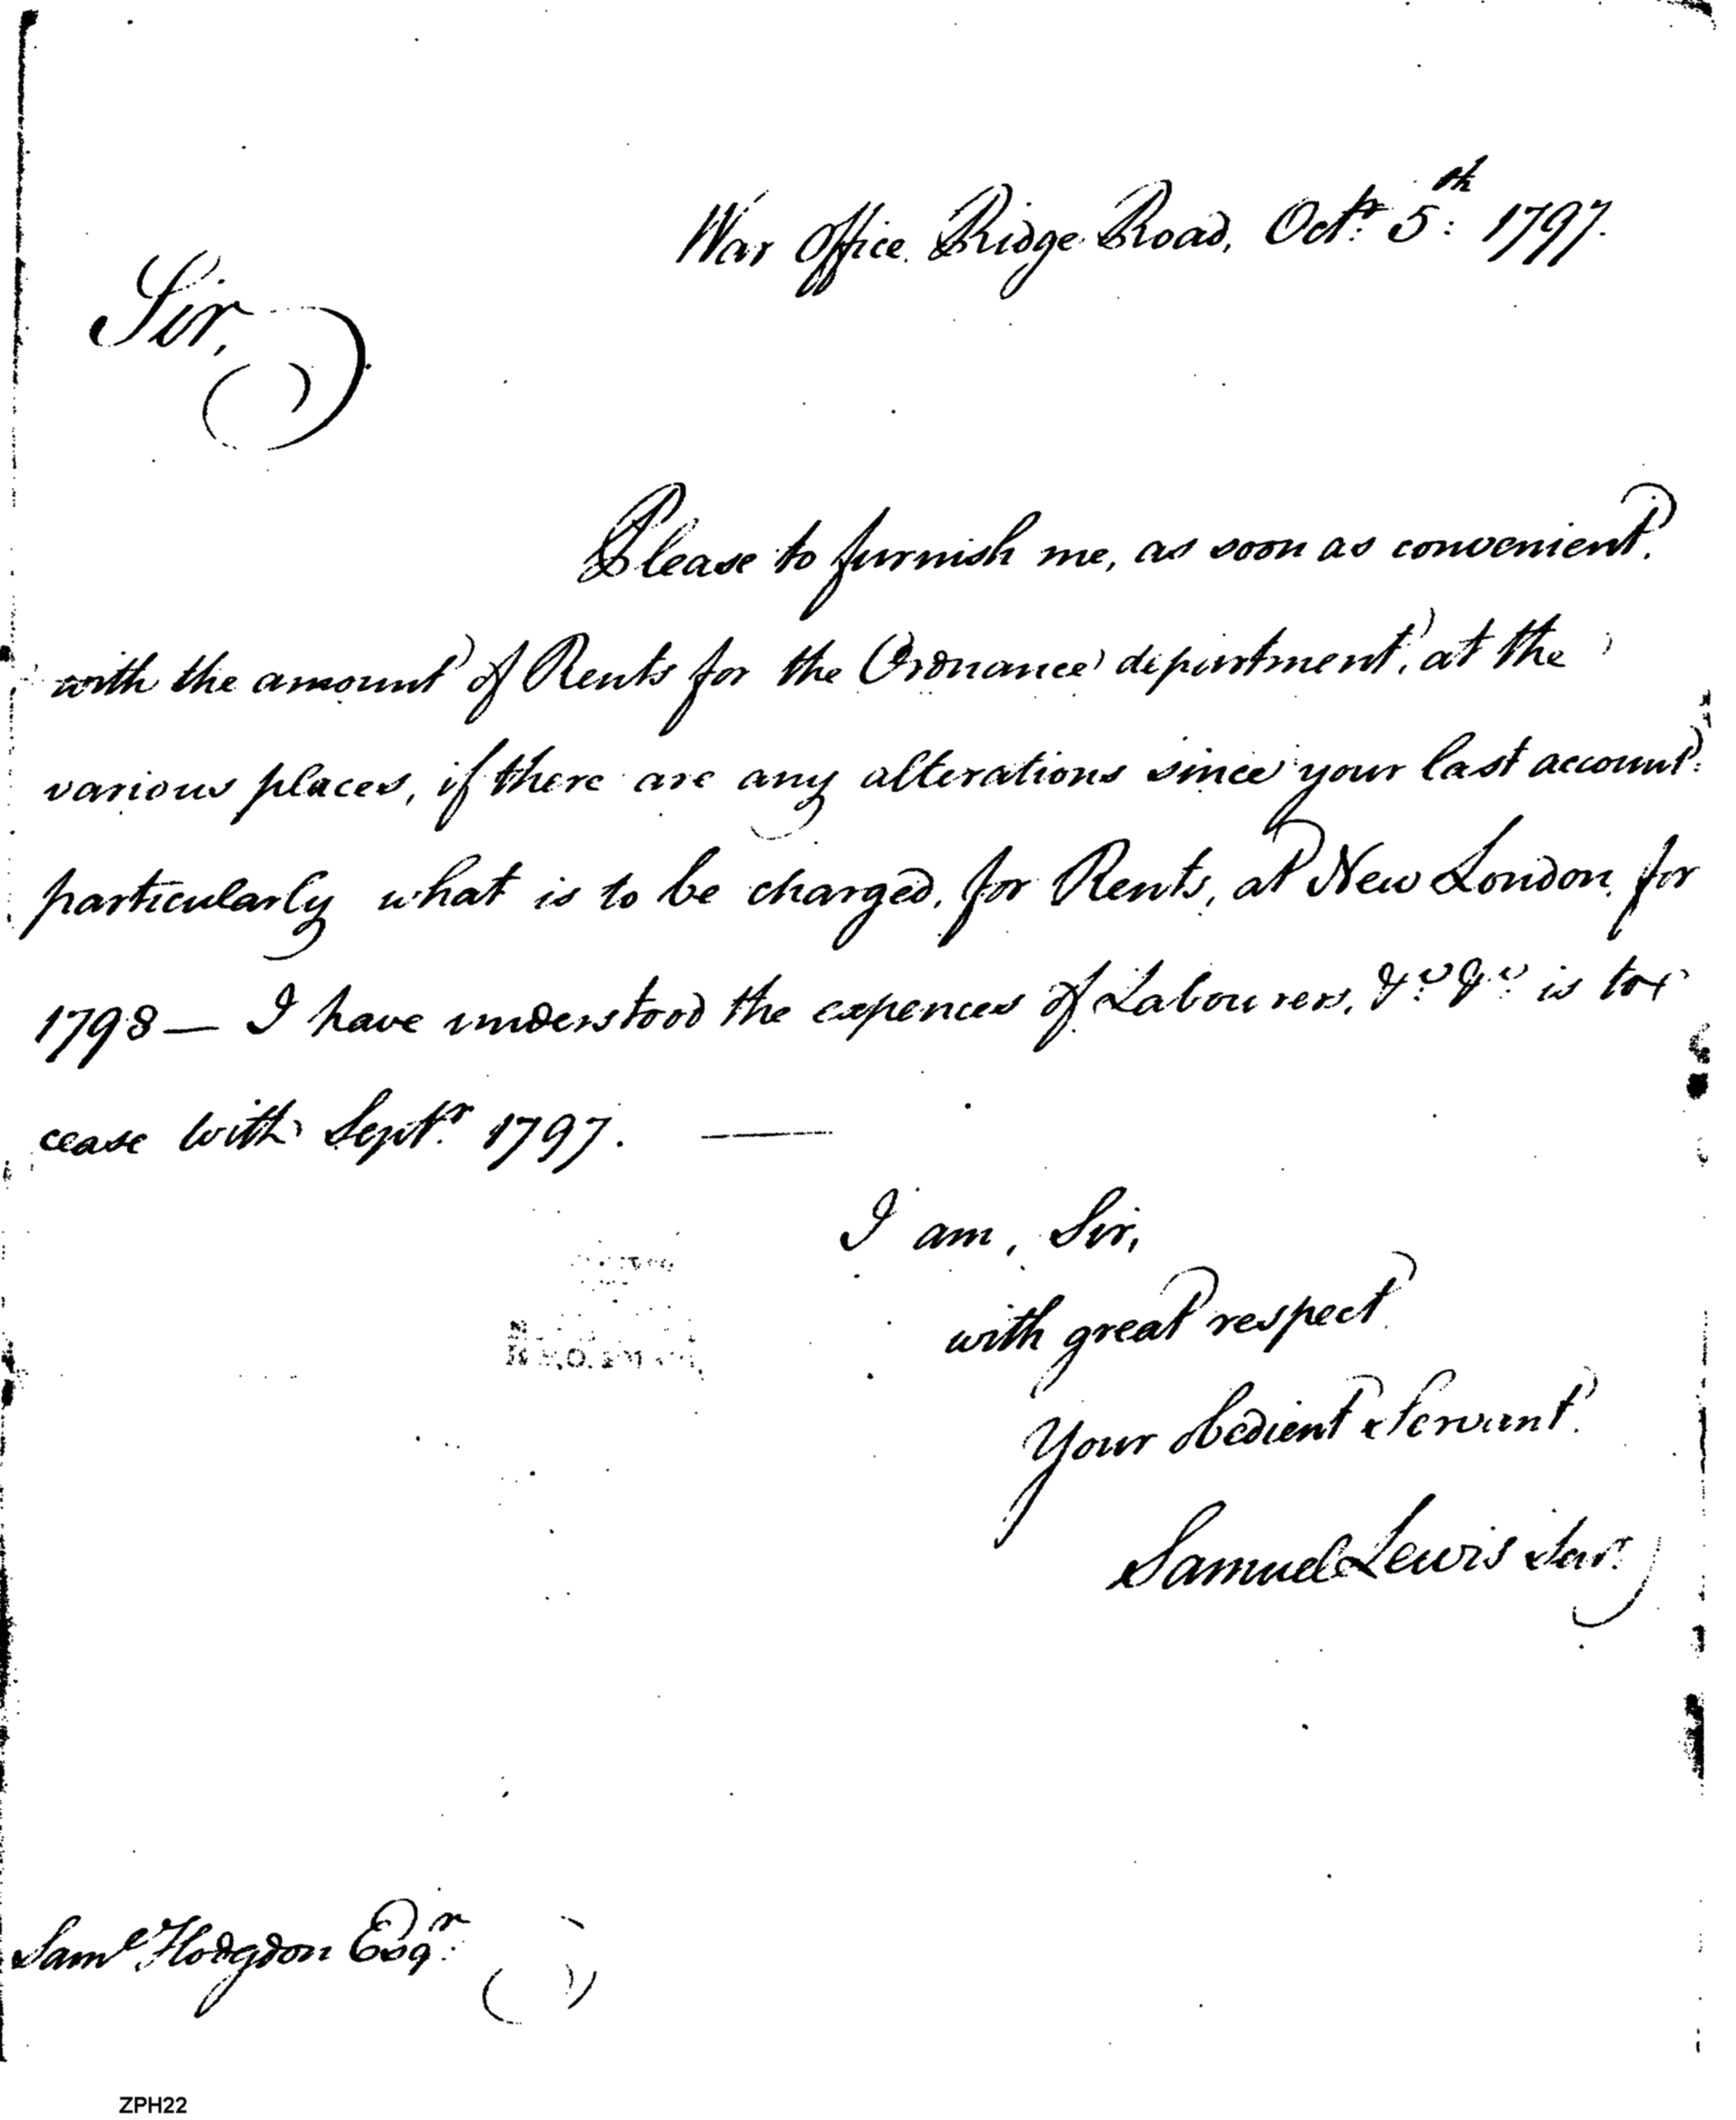 War Office. Ridge Road, Octr. 5th: 1797.
Sir,
Please to furnish me, as soon as convenient,
with the amount of Rents for the Ordnance department, at the
various places, if there are any alterations since your last account:
particularly what is to be charged, for Rents, at New London, for
1798 — I have understood the expences of Labourers, &c. &c. is to
cease with Septr. 1797. —
I am, Sir,
with great respect
Your obedient Servant.
Samuel Lewis Senr.
Saml Hodgdon Esqr.
ZPH22